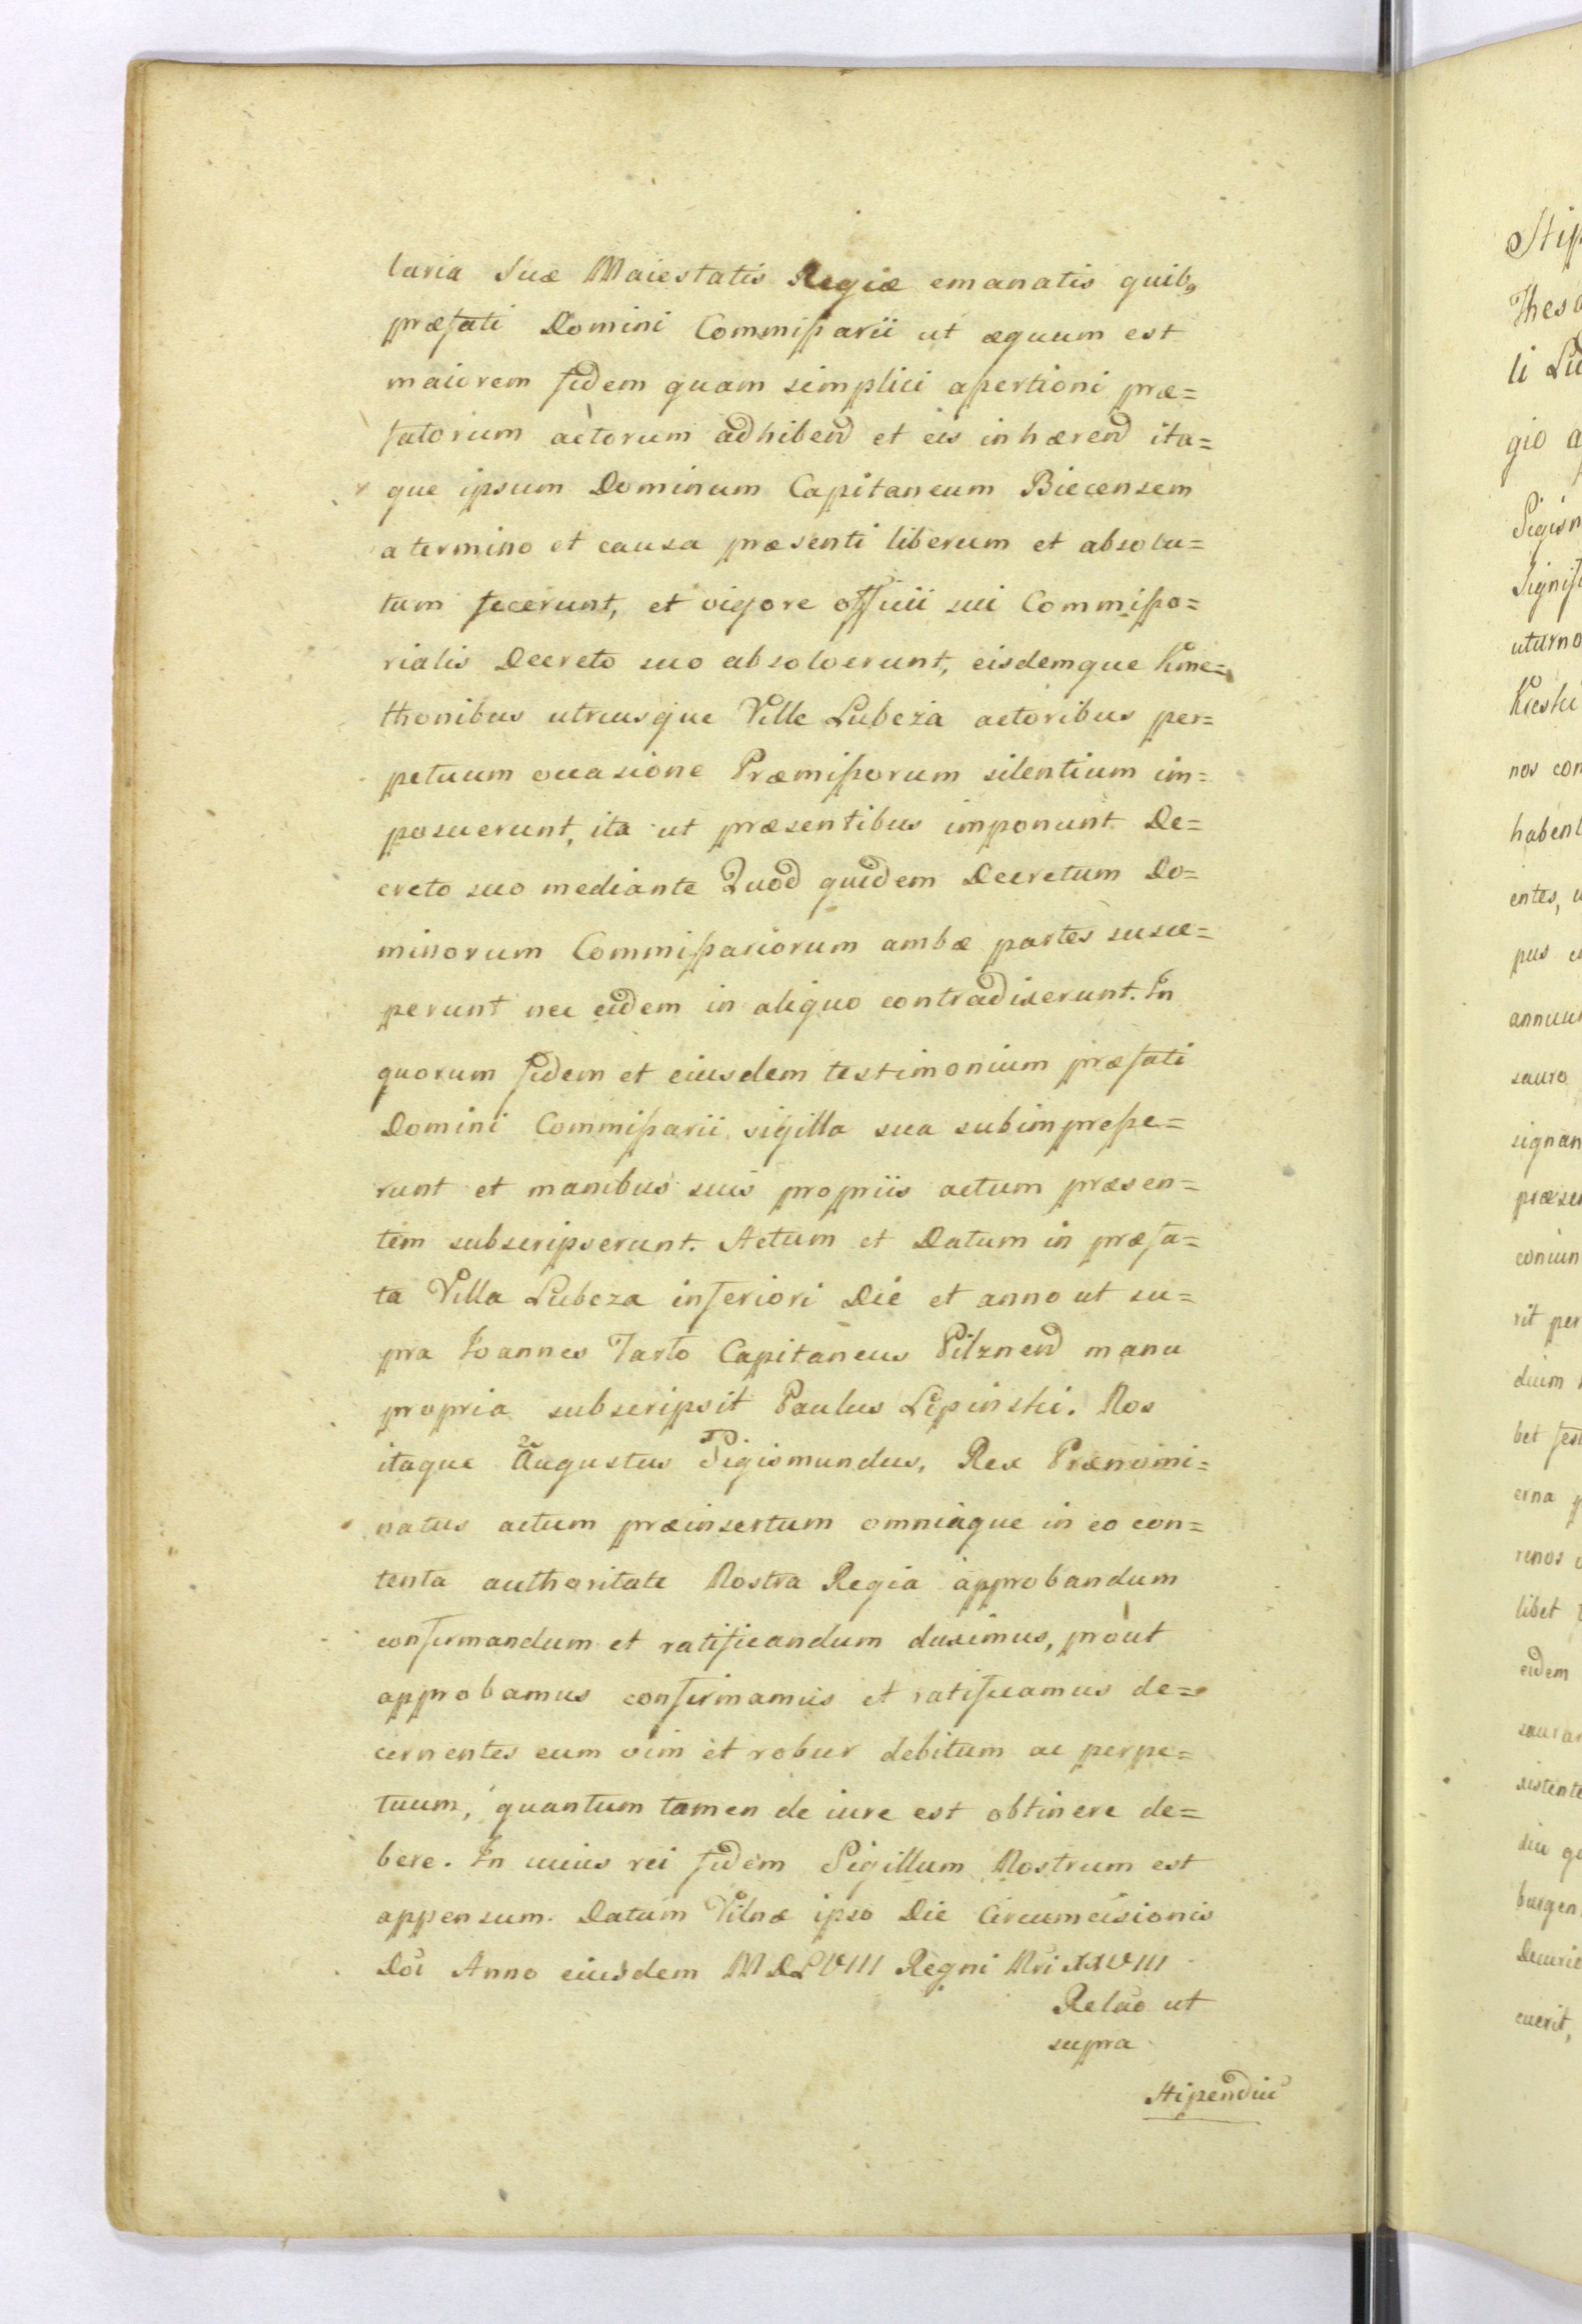 laria suæ Maiestatis Regiæ emanatis quibꝫ
præfati Domini Commissarii ut æquum est
maiorem fidem quam simplici apertioni præ=
fatorum actorum adhibend et eis inhærend ita=
que ipsum Dominum Capitaneum Biecensem
a termino et causa præsenti liberum et absolu=
tum fecerunt, et vigore officii sui Commisso=
rialis Decreto suo absolverunt, eisdemque Kme=
thonibus utriusque Ville Lubcza actoribus per=
petuum occasione Præmissorum silentium im=
posuerunt, ita ut præsentibus imponunt De=
creto suo mediante Quod quidem Decretum Do=
minorum Commissariorum ambæ partes susce=
perunt nec eidem in aliquo contradixerunt. In
quorum fidem et eiusdem testimonium præfati
Domini Commissarii sigilla sua subimpresse=
runt et manibus suis propriis actum præsen=
tem subscripserunt. Actum et Datum in præfa=
ta Villa Lubcza inferiori Die et anno ut su=
pra Ioannes Tarlo Capitaneus Pilznend manu
propria subscripsit Paulus Lipinski. Nos
itaque Augustus Sigismundus, Rex Prænomi=
natus actum præinsertum omniaque in eo con=
tenta authoritate Nostra Regia approbandum
confirmandum et ratificandum duximus, prout
approbamus confirmamus et ratificamus de=
cernentes eum vim et robur debitum ac perpe=
tuum, quantum tamen de iure est obtinere de=
bere. In cuius rei fidem Sigillum Nostrum est
appensum. Datum Vilnæ ipso Die Circumcisionis
Doi Anno eiusdem MDLVIII Regni Nri XXVIII
Relao ut
supra
Stipendiu
Stip
Thesa
li Lu
gio a
Sigism
Signif
uturno
Kieski
nos con
habent
entes, u
pus e
annuu
sauro
signan
præse
coniun
rit per
dium
bet fes
erna p
renos
libet
eidem
saurar
sistente
siu qu
burgen
Decurio
cuerit,